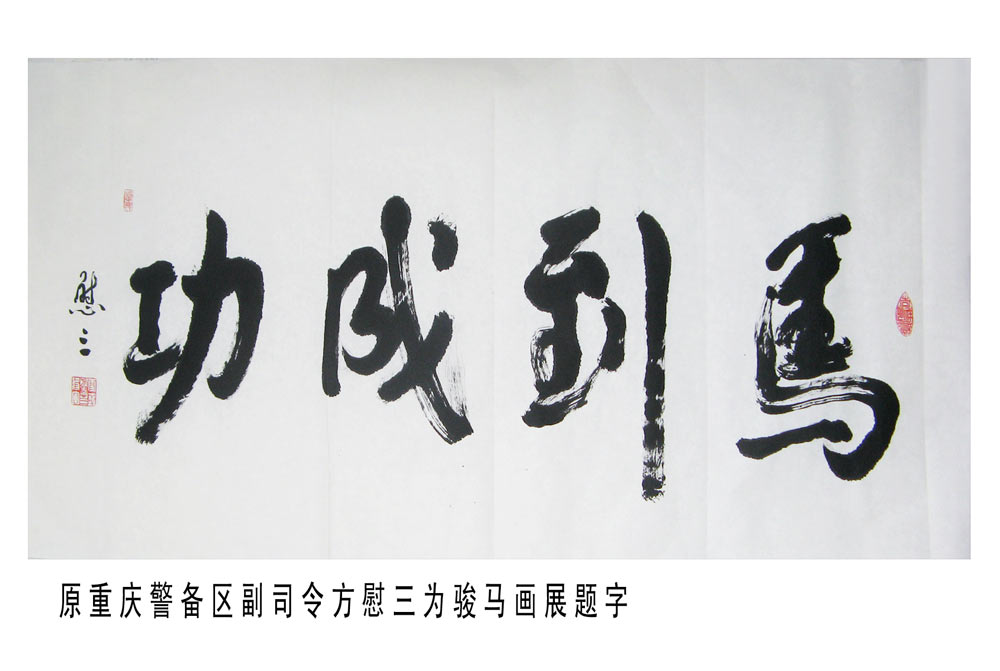 馬到成功
慰三
原重庆警备区副司令方慰三为骏马画展题字